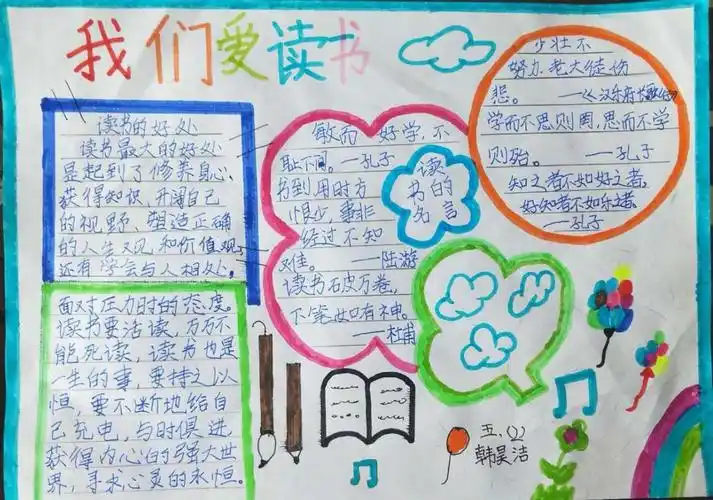 我们爱读书
读书的好处
读书最大的好处
是起到了修养身心,
获得知识,开阔自己
的视野,塑造正确
的人生观和价值观,
还有学会与人相处,
面对压力时的态度。
读书要活读,万万不
能死读,读书也是
一生的事,要持之以
恒,要不断地给自
己充电,与时俱进
获得内心的强大世
界,寻求心灵的永恒。
敏而好学,不
耻下问。—孔子
书到用时方
恨少,事非
经过不知
难。——陆游
读书破万卷,
下笔如有神。
——杜甫
读
书的
名言
少壮不
努力老大徒伤
悲。——《汉乐府长歌行》
学而不思则罔,思而不学
则殆。——孔子
知之者不如好之者,
好知者不如乐之者。
——孔子
五.(2)
韩昊洁